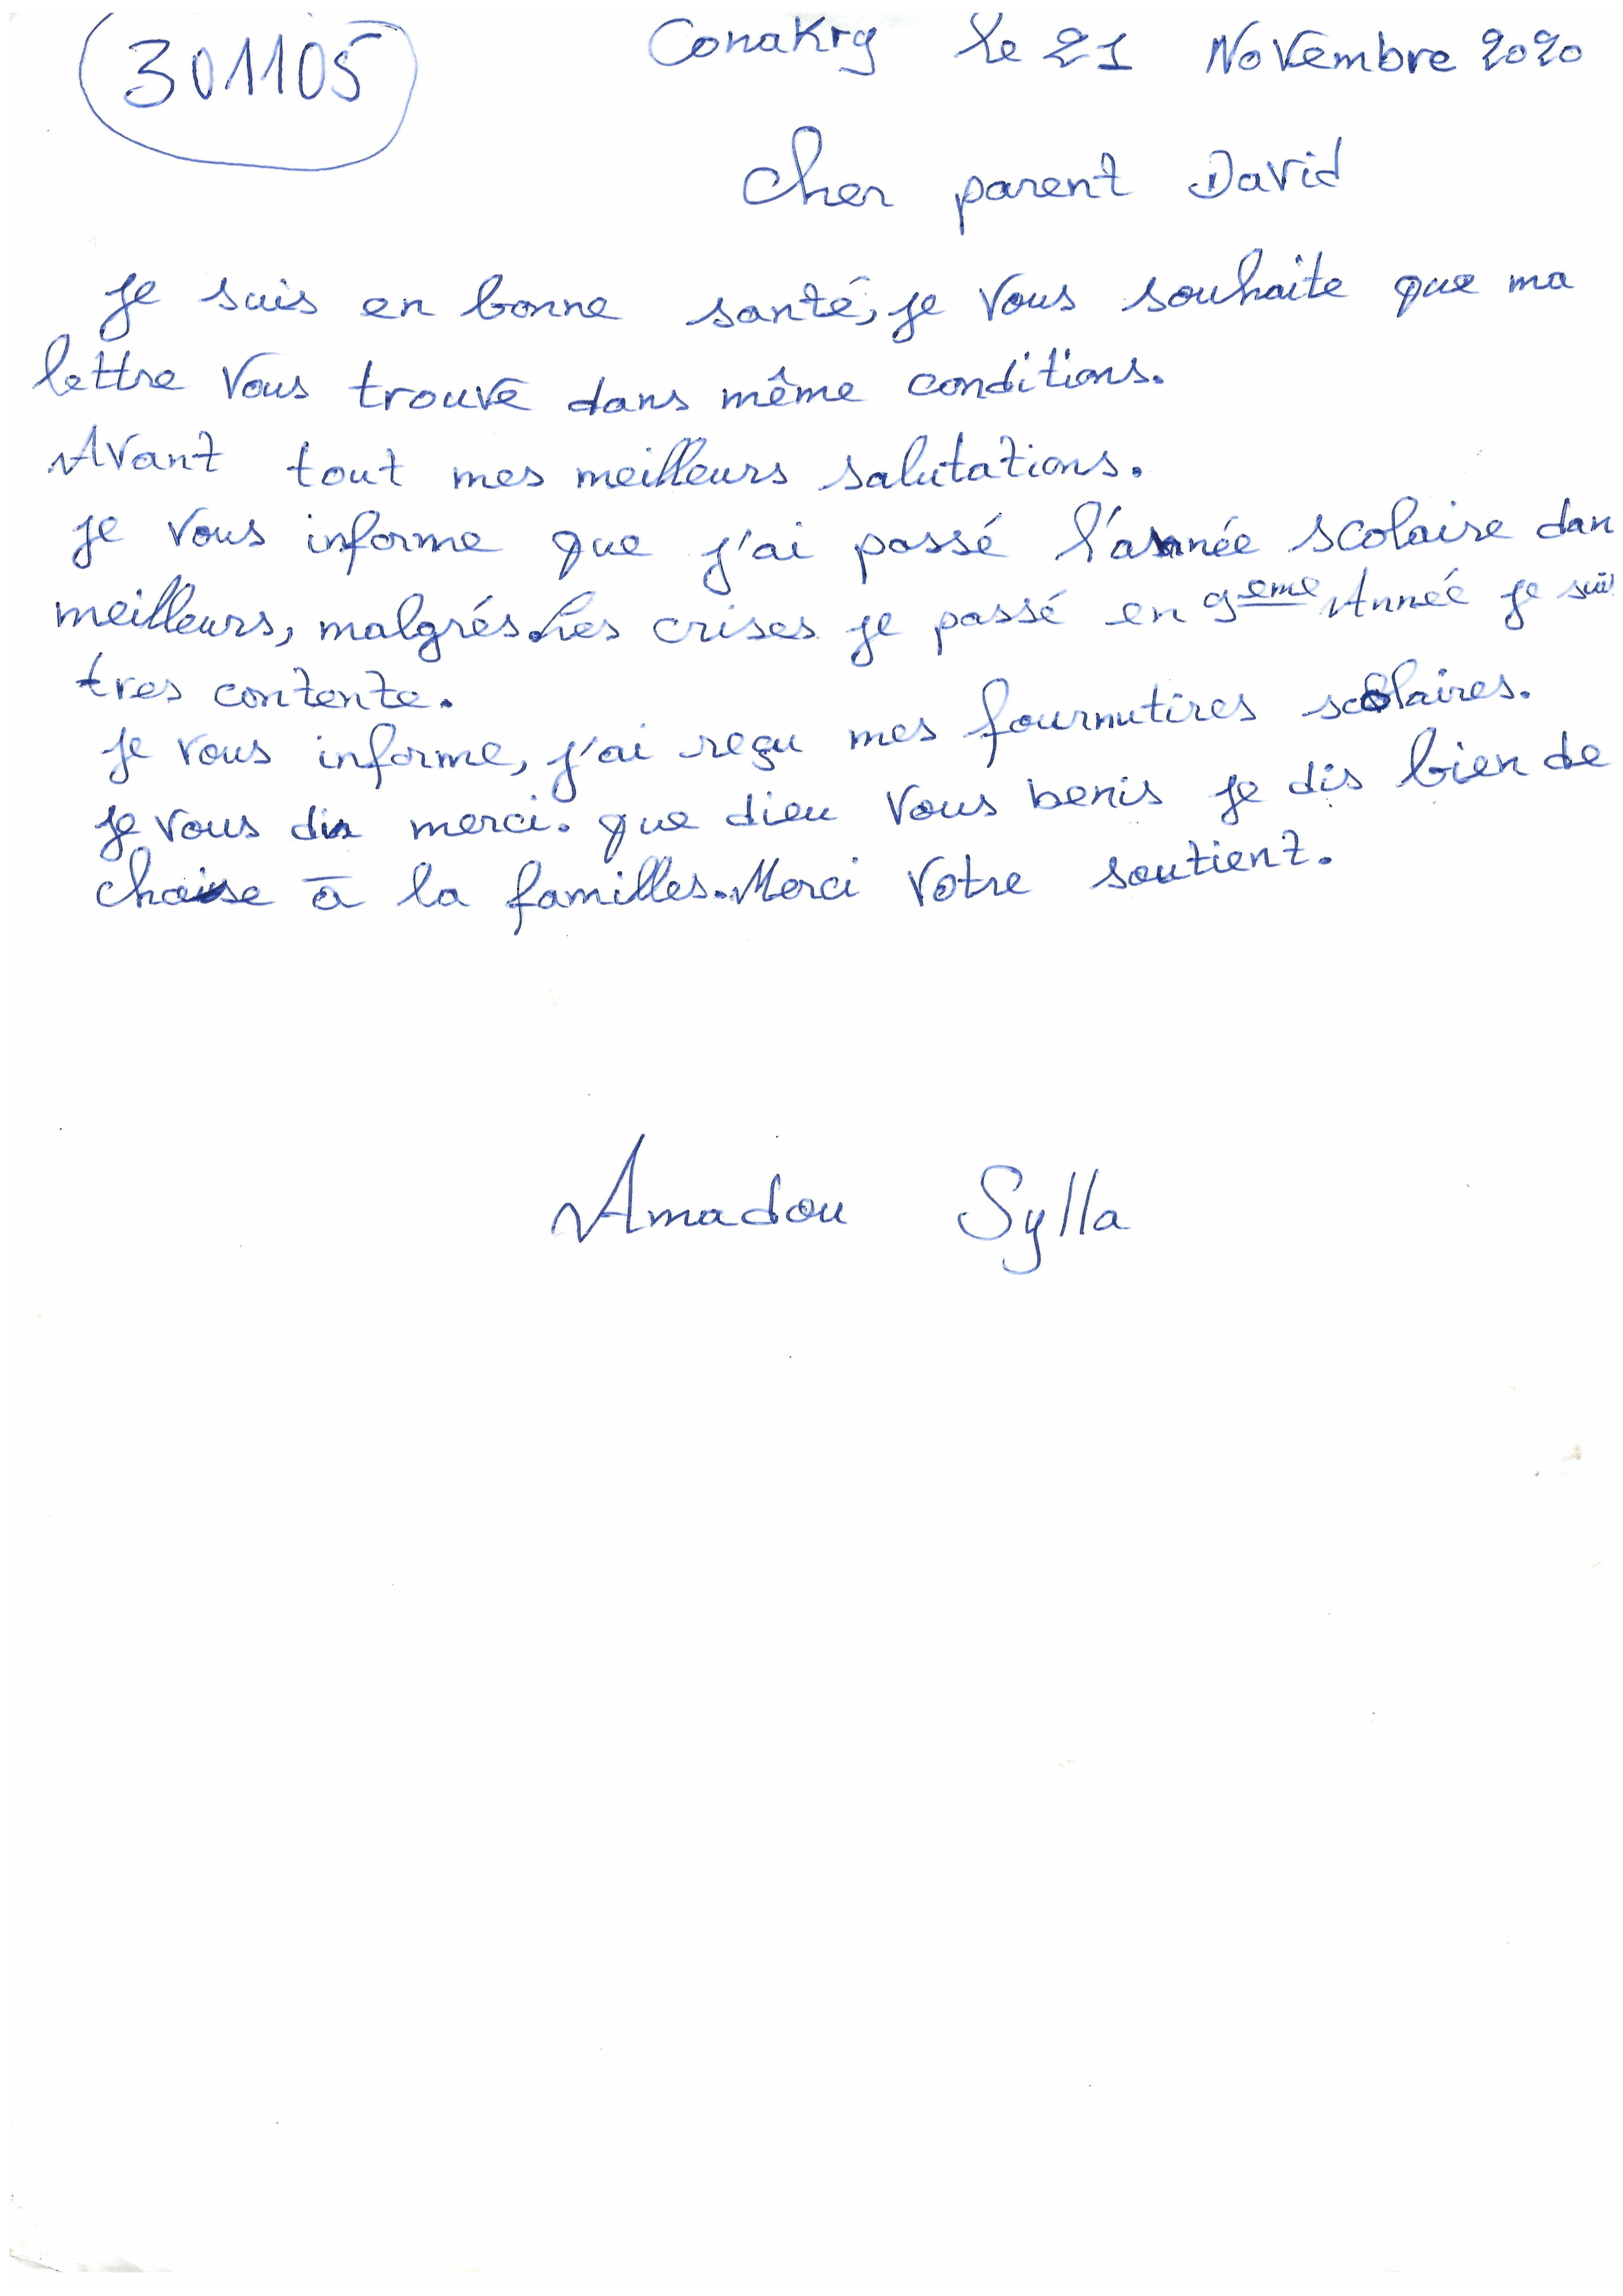 301105
Conakry le 21 Novembre 2020
Cher parent David
Je suis en bonne santé, je vous souhaite que ma
lettre vous trouve dans même conditions.
Avant tout mes meilleurs salutations.
Je vous informe que j'ai passé l'année scolaire dan
meilleurs, malgrés Les crises je passé en 9eme Année je suis
tres contente.
Je vous informe, j'ai reçu mes fournutires scolaires.
Je vous dis merci. que dieu vous benis je dis bien de
chose à la familles. Merci votre soutient.
Amadou Sylla